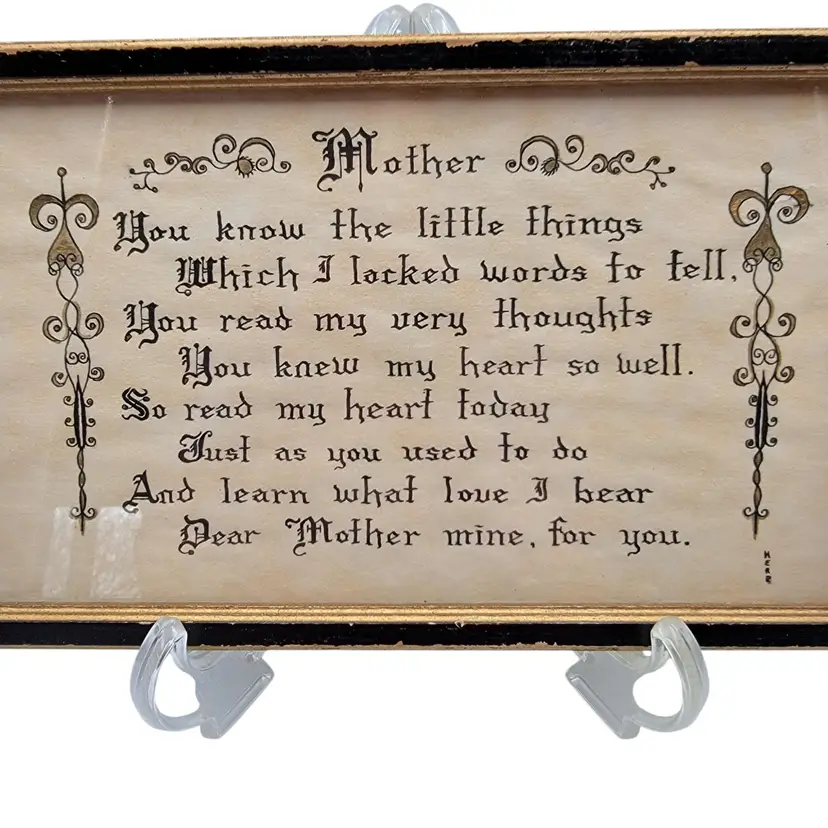 Mother
You know the little things
Which I lacked words to tell,
You read my very thoughts
You knew my heart so well.
So read my heart today
Just as you used to do
And learn what love I bear
Dear Mother mine, for you.
HERR